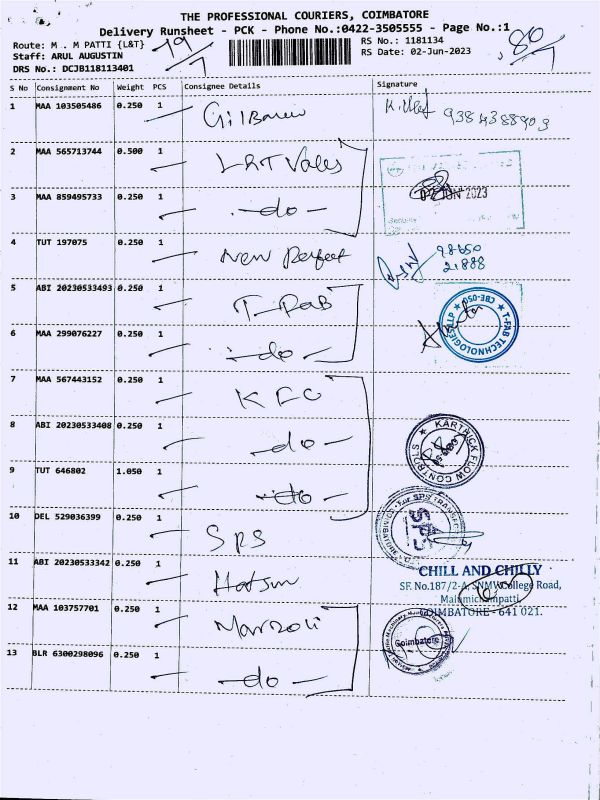 THE PROFESSIONAL COURIERS, COIMBATORE
Delivery Runsheet - PCK - Phone No.:0422-3505555 - Page No.:1
Route: M . M PATTI {L&T}
RS No.: 1181134
Staff: ARUL AUGUSTIN
RS Date: 02-Jun-2023
DRS No.: DCJB118113401
S No Consignment No Weight PCS Consignee Details Signature
1 MAA 103505486 0.250 1 9384388909
2 MAA 565713744 0.500 1 L&T Valves
3 MAA 859495733 0.250 1 -do- 02 JUN 2023
4 TUT 197075 0.250 1 New Perfect
5 ABI 20230533493 0.250 1 T-FAB
T-FAB TECHNOLOGIES LLP ★ CBE-050 ★
6 MAA 299076227 0.250 1 -do-
7 MAA 567443152 0.250 1 KFC
8 ABI 20230533408 0.250 1 -do-
KARTHICK FLOW CONTROLS
9 TUT 646802 1.050 1 -do-
10 DEL 529036399 0.250 1 SPS
SPS
11 ABI 20230533342 0.250 1 Hatsun
CHILL AND CHILLY
SF. No.187/2-A, SNMV College Road,
Malumichampatti,
COIMBATORE - 641 021.
12 MAA 103757701 0.250 1 Marzoli
Coimbatore
13 BLR 6300298096 0.250 1 -do-